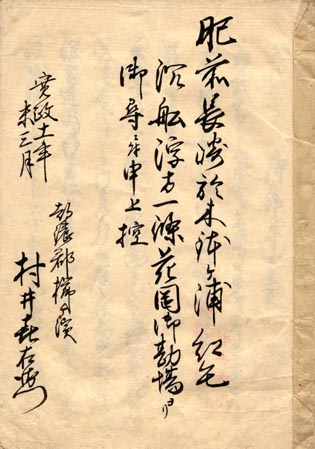 肥前長崎於木鉢ヶ浦紅毛
沈船浮方一條花岡御勘場ゟ
御尋ニ付申上控
寛政十一年
未三月
都濃郡櫛ヶ濱
村井喜右衛門